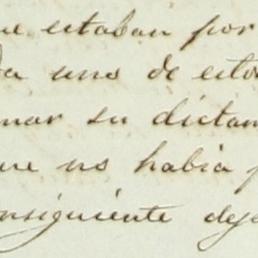 ue estaban por
da uno de estos
mar su dictam
que no habia p
onsiguiente dej